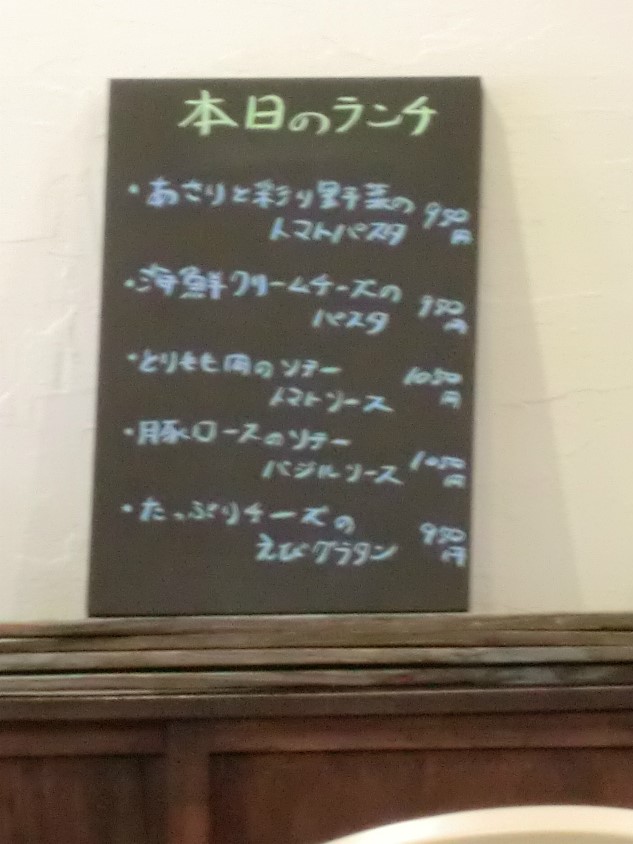 本日のランチ
・あさりと彩り野菜の
トマトパスタ 950円
・海鮮クリームチーズの
パスタ 950円
・とりもも肉のソテー
トマトソース 1050円
・豚ロースのソテー
バジルソース 1050円
・たっぷりチーズの
えびグラタン 950円